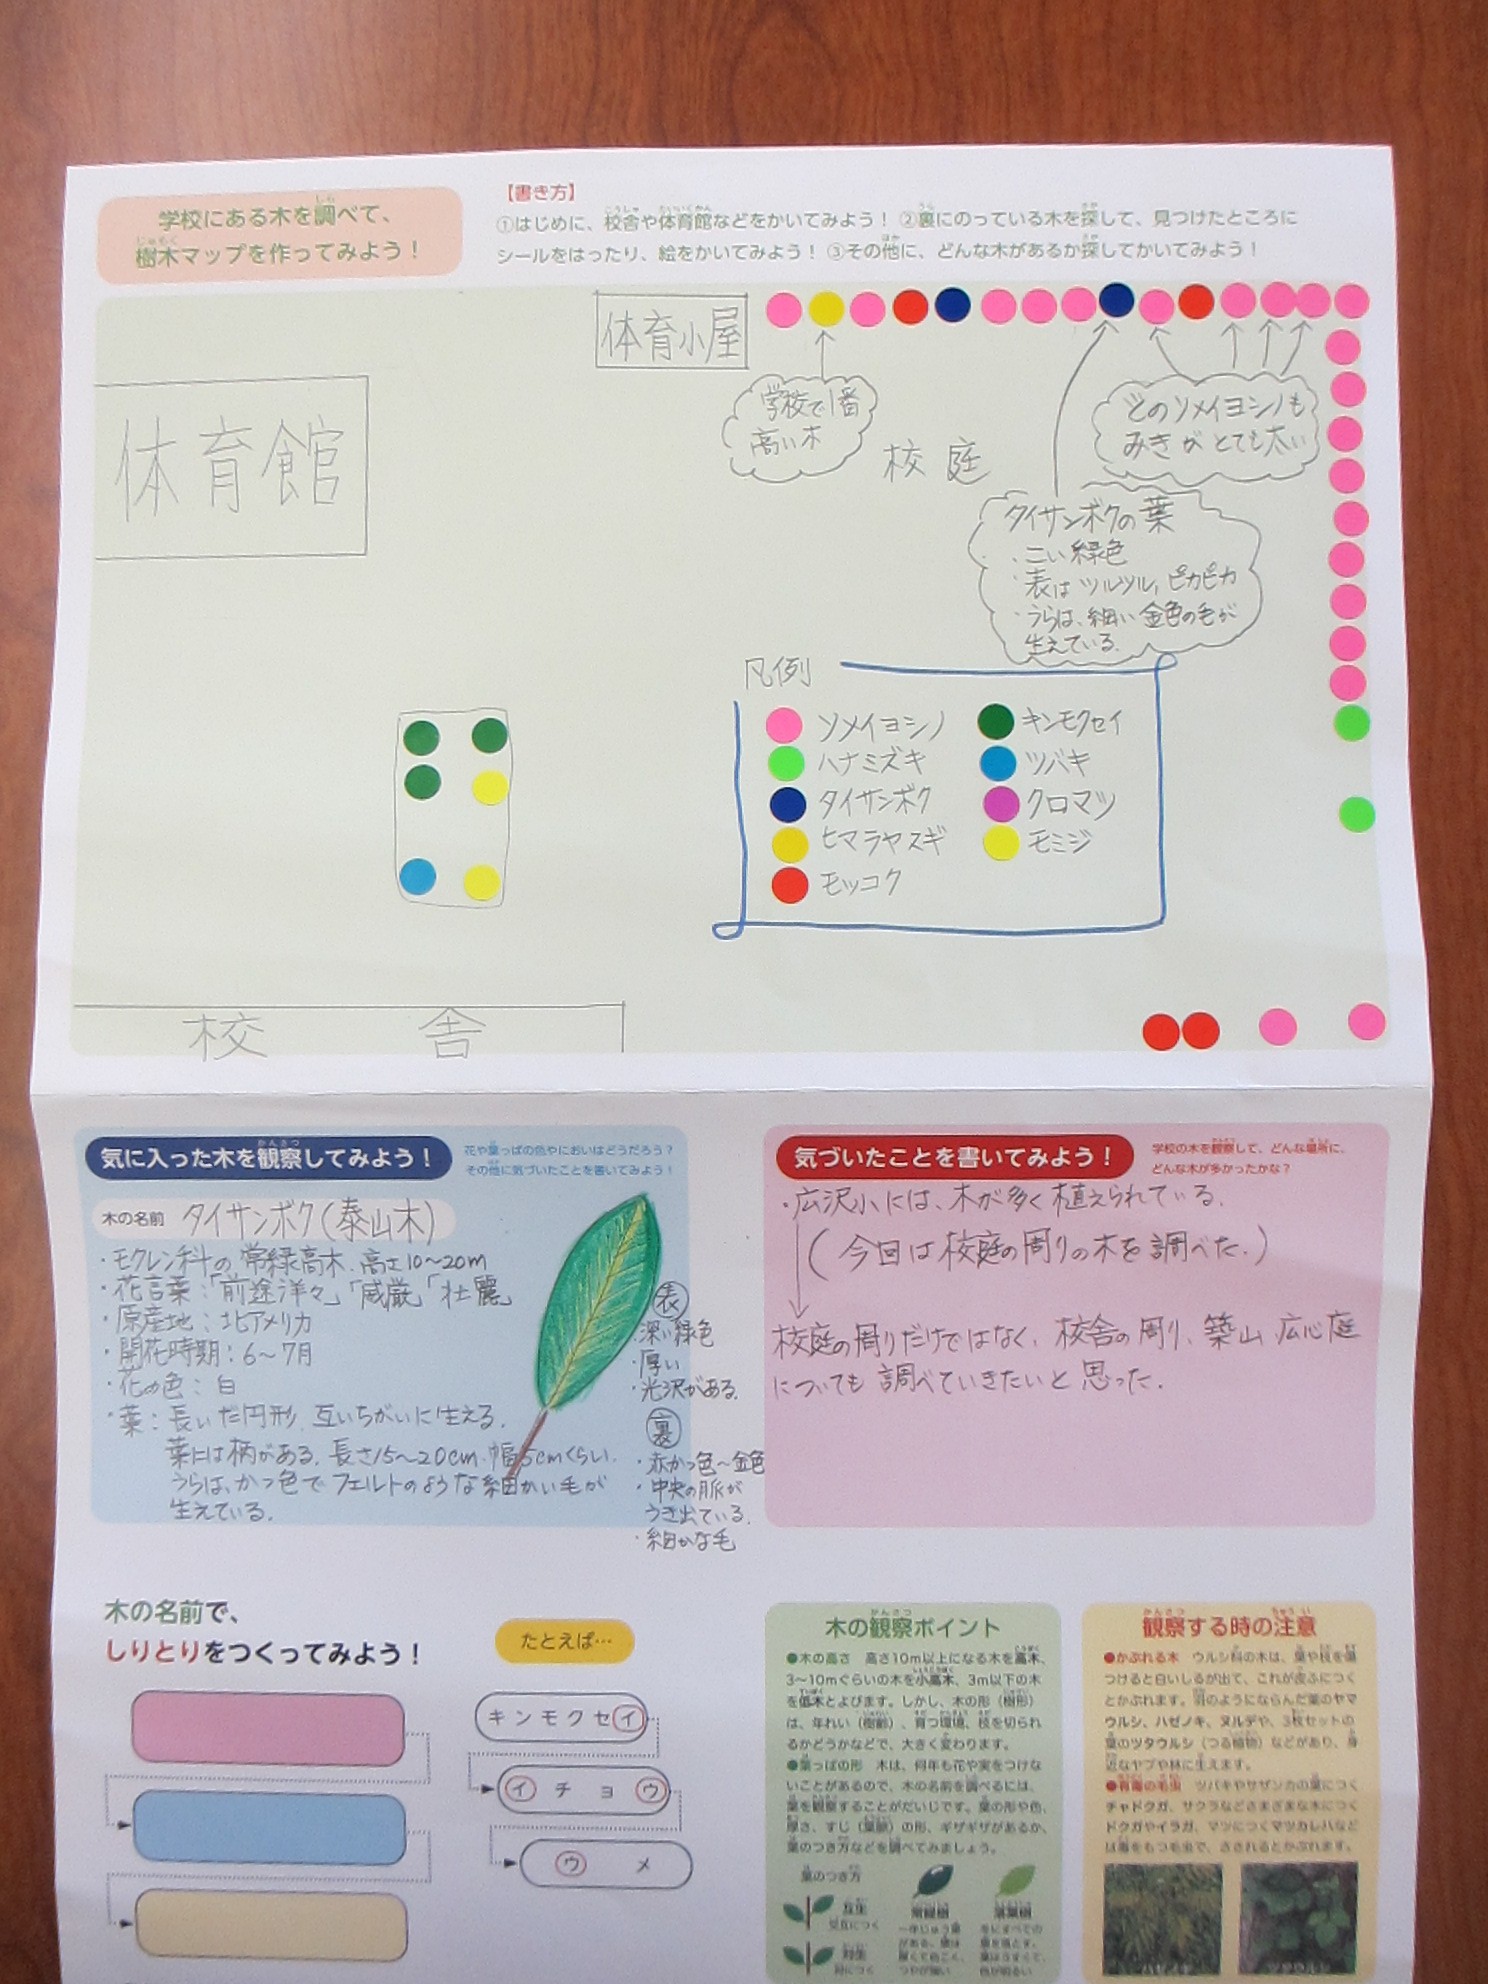 学校にある木を調べて、
樹木マップを作ってみよう！
【書き方】
①はじめに、校舎や体育館などをかいてみよう！ ②裏にのっている木を探して、見つけたところに
シールをはったり、絵をかいてみよう！ ③その他に、どんな木があるか探してかいてみよう！
体育小屋
体育館
学校で1番
高い木
校庭
どのソメイヨシノも
みきがとても太い
タイサンボクの葉
・こい緑色
・表はツルツル,ピカピカ
・うらは、細い金色の毛が
生えている.
凡例
ソメイヨシノ
キンモクセイ
ハナミズキ
ツバキ
タイサンボク
クロマツ
ヒマラヤスギ
モミジ
モッコク
校舎
気に入った木を観察してみよう！
花や葉っぱの色やにおいはどうだろう？
その他に気づいたことを書いてみよう！
木の名前 タイサンボク(泰山木)
・モクレン科の常緑高木.高さ10〜20m
・花言葉：「前途洋々」「威厳」「壮麗」
・原産地：北アメリカ
・開花時期：6〜7月
・花の色：白
・葉：長いだ円形.互いちがいに生える.
葉には柄がある.長さ15〜20cm.幅5cmくらい.
うらは、かっ色でフェルトのような細かい毛が
生えている.
表
・深い緑色
・厚い
・光沢がある.
裏
・赤かっ色〜金色
・中央の脈が
うき出ている.
・細かな毛
気づいたことを書いてみよう！
学校の木を観察して、どんな場所に、
どんな木が多かったかな？
・広沢小には、木が多く植えられている.
(今回は校庭の周りの木を調べた.)
校庭の周りだけではなく、校舎の周り、築山、広心庭
についても調べていきたいと思った.
木の名前で、
しりとりをつくってみよう！
たとえば…
キンモクセイ
イチョウ
ウメ
木の観察ポイント
●木の高さ 高さ10m以上になる木を高木、
3〜10mぐらいの木を小高木、3m以下の木
を低木とよびます。しかし、木の形（樹形）
は、年れい（樹齢）、育つ環境、枝を切られ
るかどうかなどで、大きく変わります。
●葉っぱの形 木は、何年も花や実をつけな
いことがあるので、木の名前を調べるには、
葉を観察することがだいじです。葉の形や色、
厚さ、すじ（葉脈）の形、ギザギザがあるか、
葉のつき方などを調べてみましょう。
葉のつき方
互生
交互につく
対生
対につく
常緑樹
落葉樹
観察する時の注意
●かぶれる木 ウルシ科の木は、葉や枝を傷
つけると白いしるが出て、これが皮ふにつく
とかぶれます。羽のようにならんだ葉のヤマ
ウルシ、ハゼノキ、ヌルデや、3枚セットの
葉のツタウルシ（つる植物）などがあり、身
近なヤブや林に生えます。
●有毒の毛虫 ツバキやサザンカの葉につく
チャドクガ、サクラなどさまざまな木につく
ドクガやイラガ、マツにつくマツカレハなど
は毒をもつ毛虫で、さされるとかぶれます。
ハゼノキ
ツタウルシ